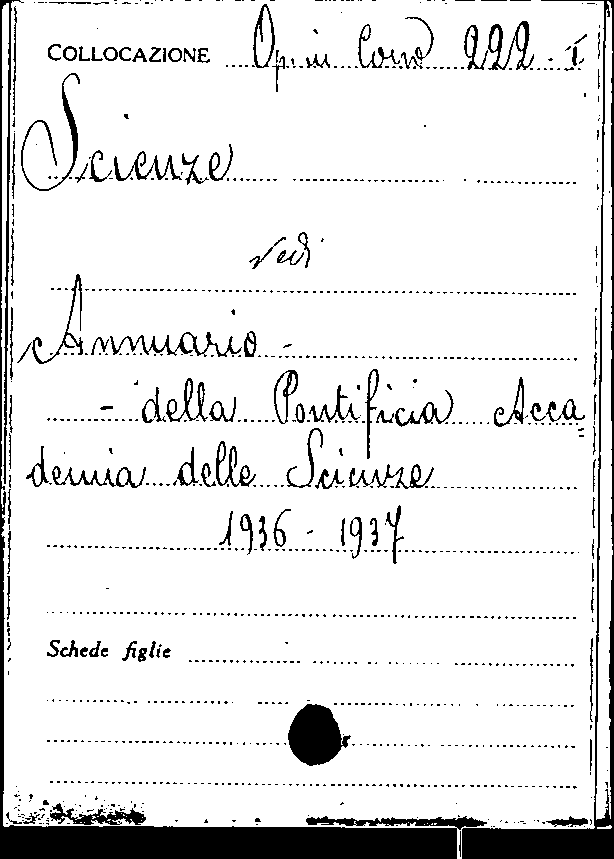 COLLOCAZIONE Op. in Corso 222 - I
Scienze
vedi
Annuario -
- della Pontificia Acca
demia delle Scienze
1936 - 1937
Schede figlie